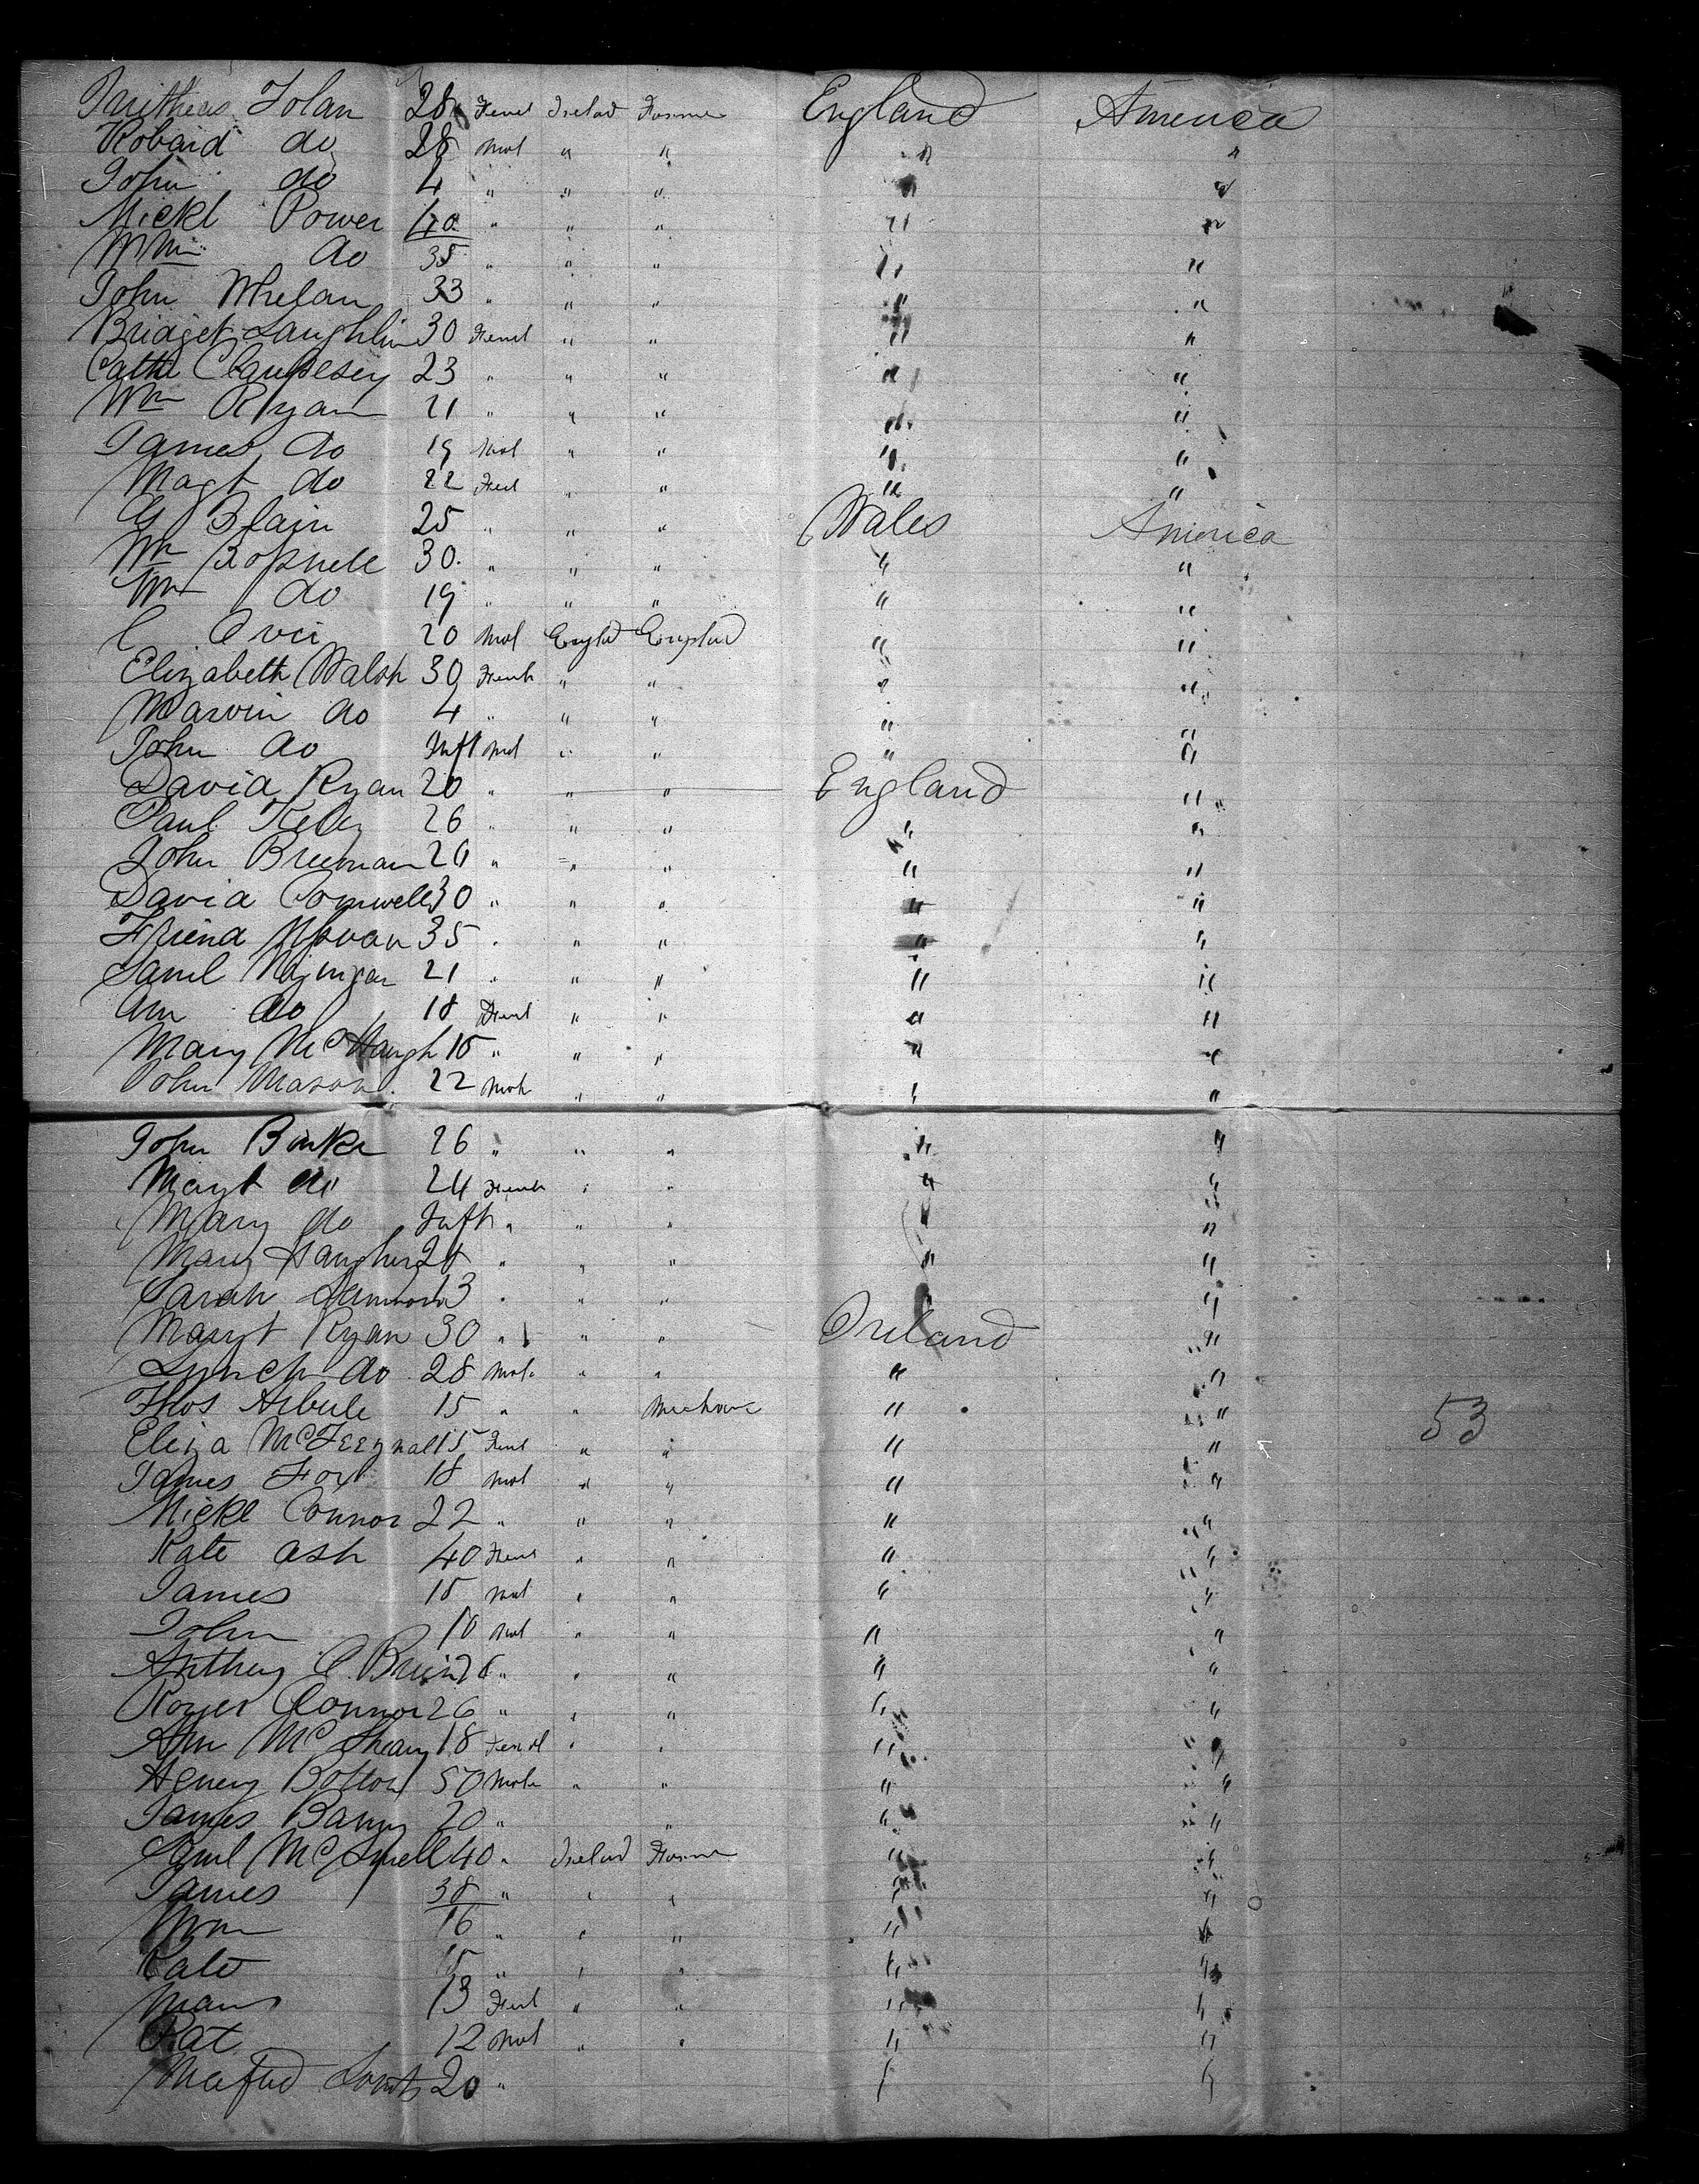 Tolan 28 Feml Irelad Farmer England America
Robard do 28 Mal " " " "
John do 4 " " " " "
Mickl Power 40 " " " " "
Wm do 35 " " " " "
John Whelan 33 " " " " "
Bridget Laughlin 30 Feml " " " "
Cathe 23 " " " " "
Wm Ryan 21 " " " " "
James do 19 Mal " " " "
Magt do 22 Feml " " " "
Blain 25 " " " Wales America
Wm 30 " " " " "
Wm do 19 " " " " "
C 20 Mal Englad Englad " "
Elizabeth Walsh 30 Femle " " " "
Marvin do 4 " " " " "
John do Inft Mal " " " "
David Ryan 20 " " " England "
Paul Kelly 26 " " " " "
John Breenan 20 " " " " "
David Cornwell 30 " " " " "
Friend 35 " " " " "
Saml 21 " " " " "
Ann do 18 Feml " " " "
Mary McHaugh 15 " " " " "
John Mason 22 Male " " " "
John Burke 26 " " " " "
Mayt do 24 Femle " " " "
Mary do Inft " " " " "
Mary " " " " "
Sarah 13 " " " " "
Magyt Ryan 30 " " " Ireland "
Lynch do 28 Male " " " "
Thos 15 " " Mechanic " "
Eliza 15 Feml " " " "
James Fox 18 Mal " " " "
Mickl Connor 22 " " " " "
Kate Ash 40 Feml " " " "
James 15 Mal " " " "
John 10 Mal " " " "
Anthony O.Brien " " " " "
Roger Connor 26 " " " " "
Ann McSheary 18 Femal " " " "
Henery Bolton 50 Male " " " "
James Barry 20 " " " "
Saml 40 " Irelad Farmer " "
James 38 " " " " "
Wm 16 " " " " "
Kate 15 " " " " "
Mary 13 Feml " " " "
Pat 12 Mal " " " "
20 " " "
53